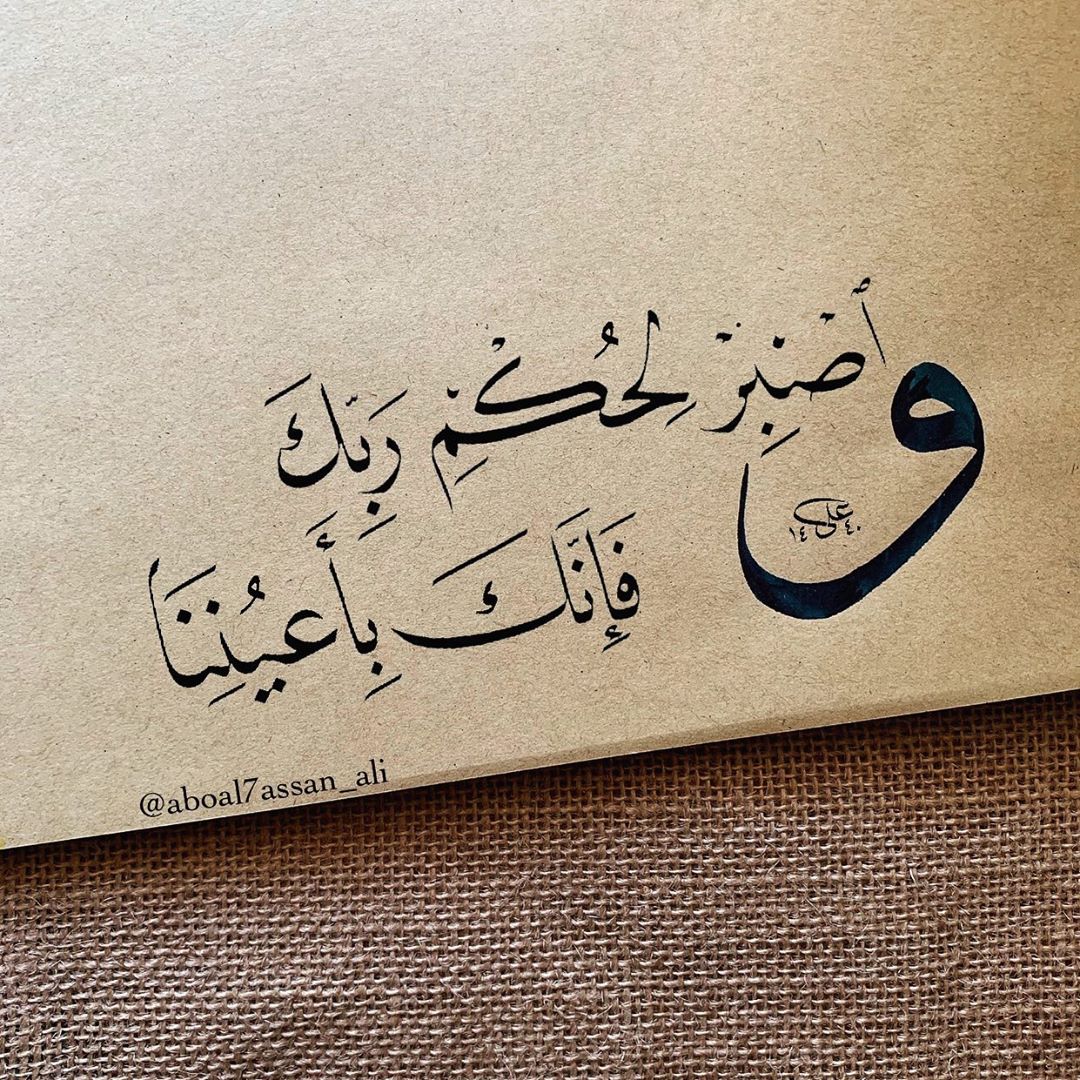 وَٱصْبِرْ لِحُكْمِ رَبِّكَ
فَإِنَّكَ بِأَعيُنِنَا
علي ١٤٤٠
@aboal7assan_ali